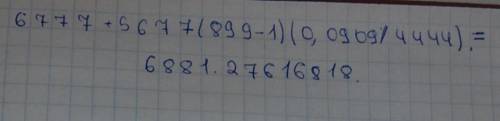 6777+5677(899-1)(0,0909/4444).=
6881.27616818.